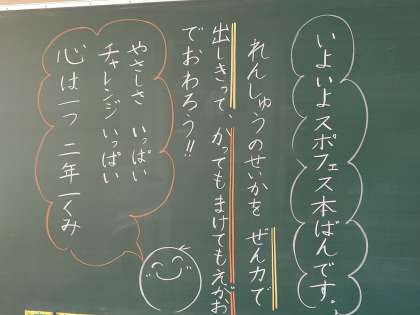 いよいよスポフェス本ばんです。
れんしゅうのせいかを ぜん力で
出しきって、かってもまけてもえがお
でおわろう!!
やさしさ いっぱい
チャレンジ いっぱい
心は一つ 二年一くみ